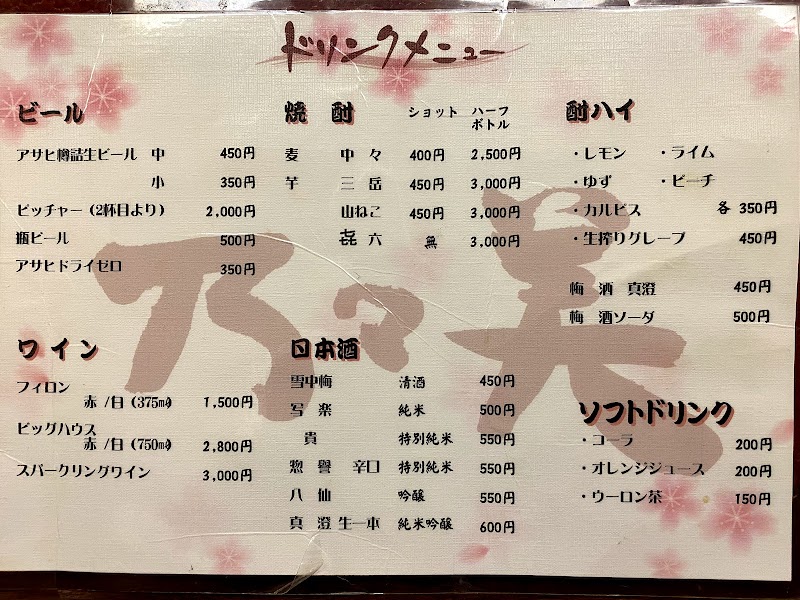 ドリンクメニュー
ビール
アサヒ樽詰生ビール 中 450円
小 350円
ピッチャー (2杯目より) 2,000円
瓶ビール 500円
アサヒドライゼロ 350円
ワイン
フィロン
赤 / 白 (375㎖) 1,500円
ビッグハウス
赤 / 白 (750㎖) 2,800円
スパークリングワイン 3,000円
焼酎 ショット ハーフ
ボトル
麦 中々 400円 2,500円
芋 三岳 450円 3,000円
山ねこ 450円 3,000円
㐂六 無 3,000円
日本酒
雪中梅 清酒 450円
写楽 純米 500円
貴 特別純米 550円
惣誉 辛口 特別純米 550円
八仙 吟醸 550円
真澄 生一本 純米吟醸 600円
酎ハイ
・レモン ・ライム
・ゆず ・ピーチ
・カルピス 各 350円
・生搾りグレープ 450円
梅酒 真澄 450円
梅酒ソーダ 500円
ソフトドリンク
・コーラ 200円
・オレンジジュース 200円
・ウーロン茶 150円